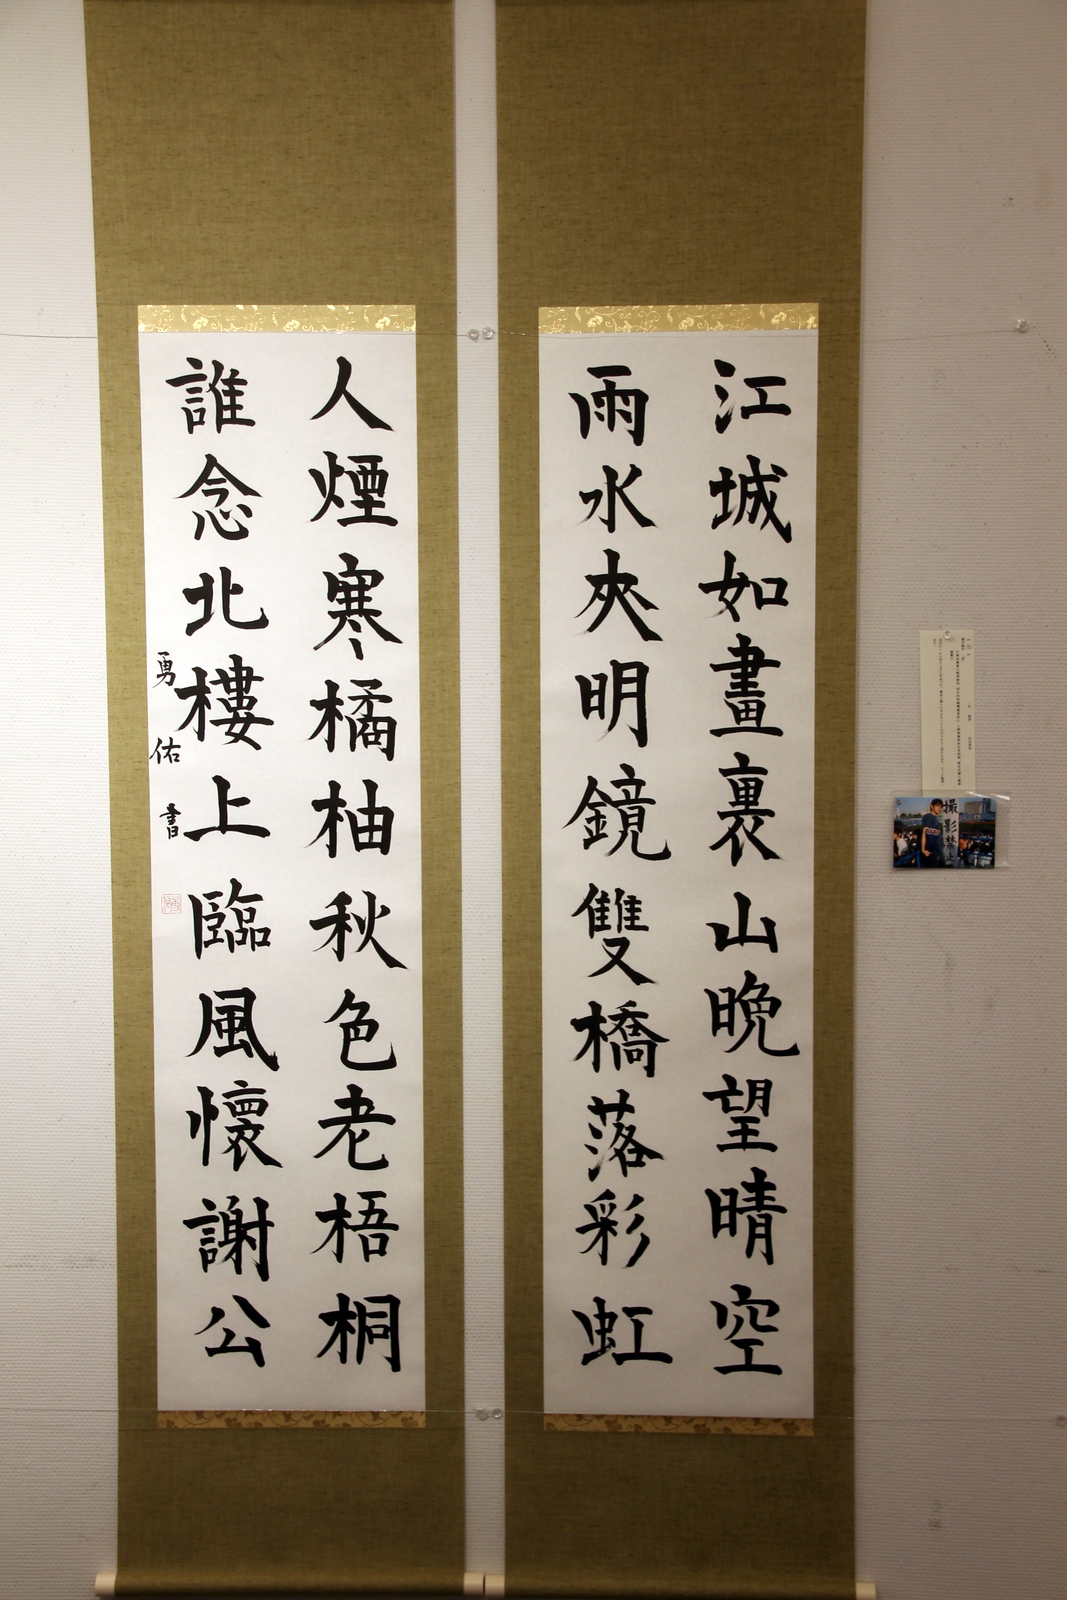 江城如畫裏山晩望晴空
雨水夾明鏡雙橋落彩虹
人煙寒橘柚秋色老梧桐
誰念北樓上臨風懷謝公
勇佑書
撮影禁止